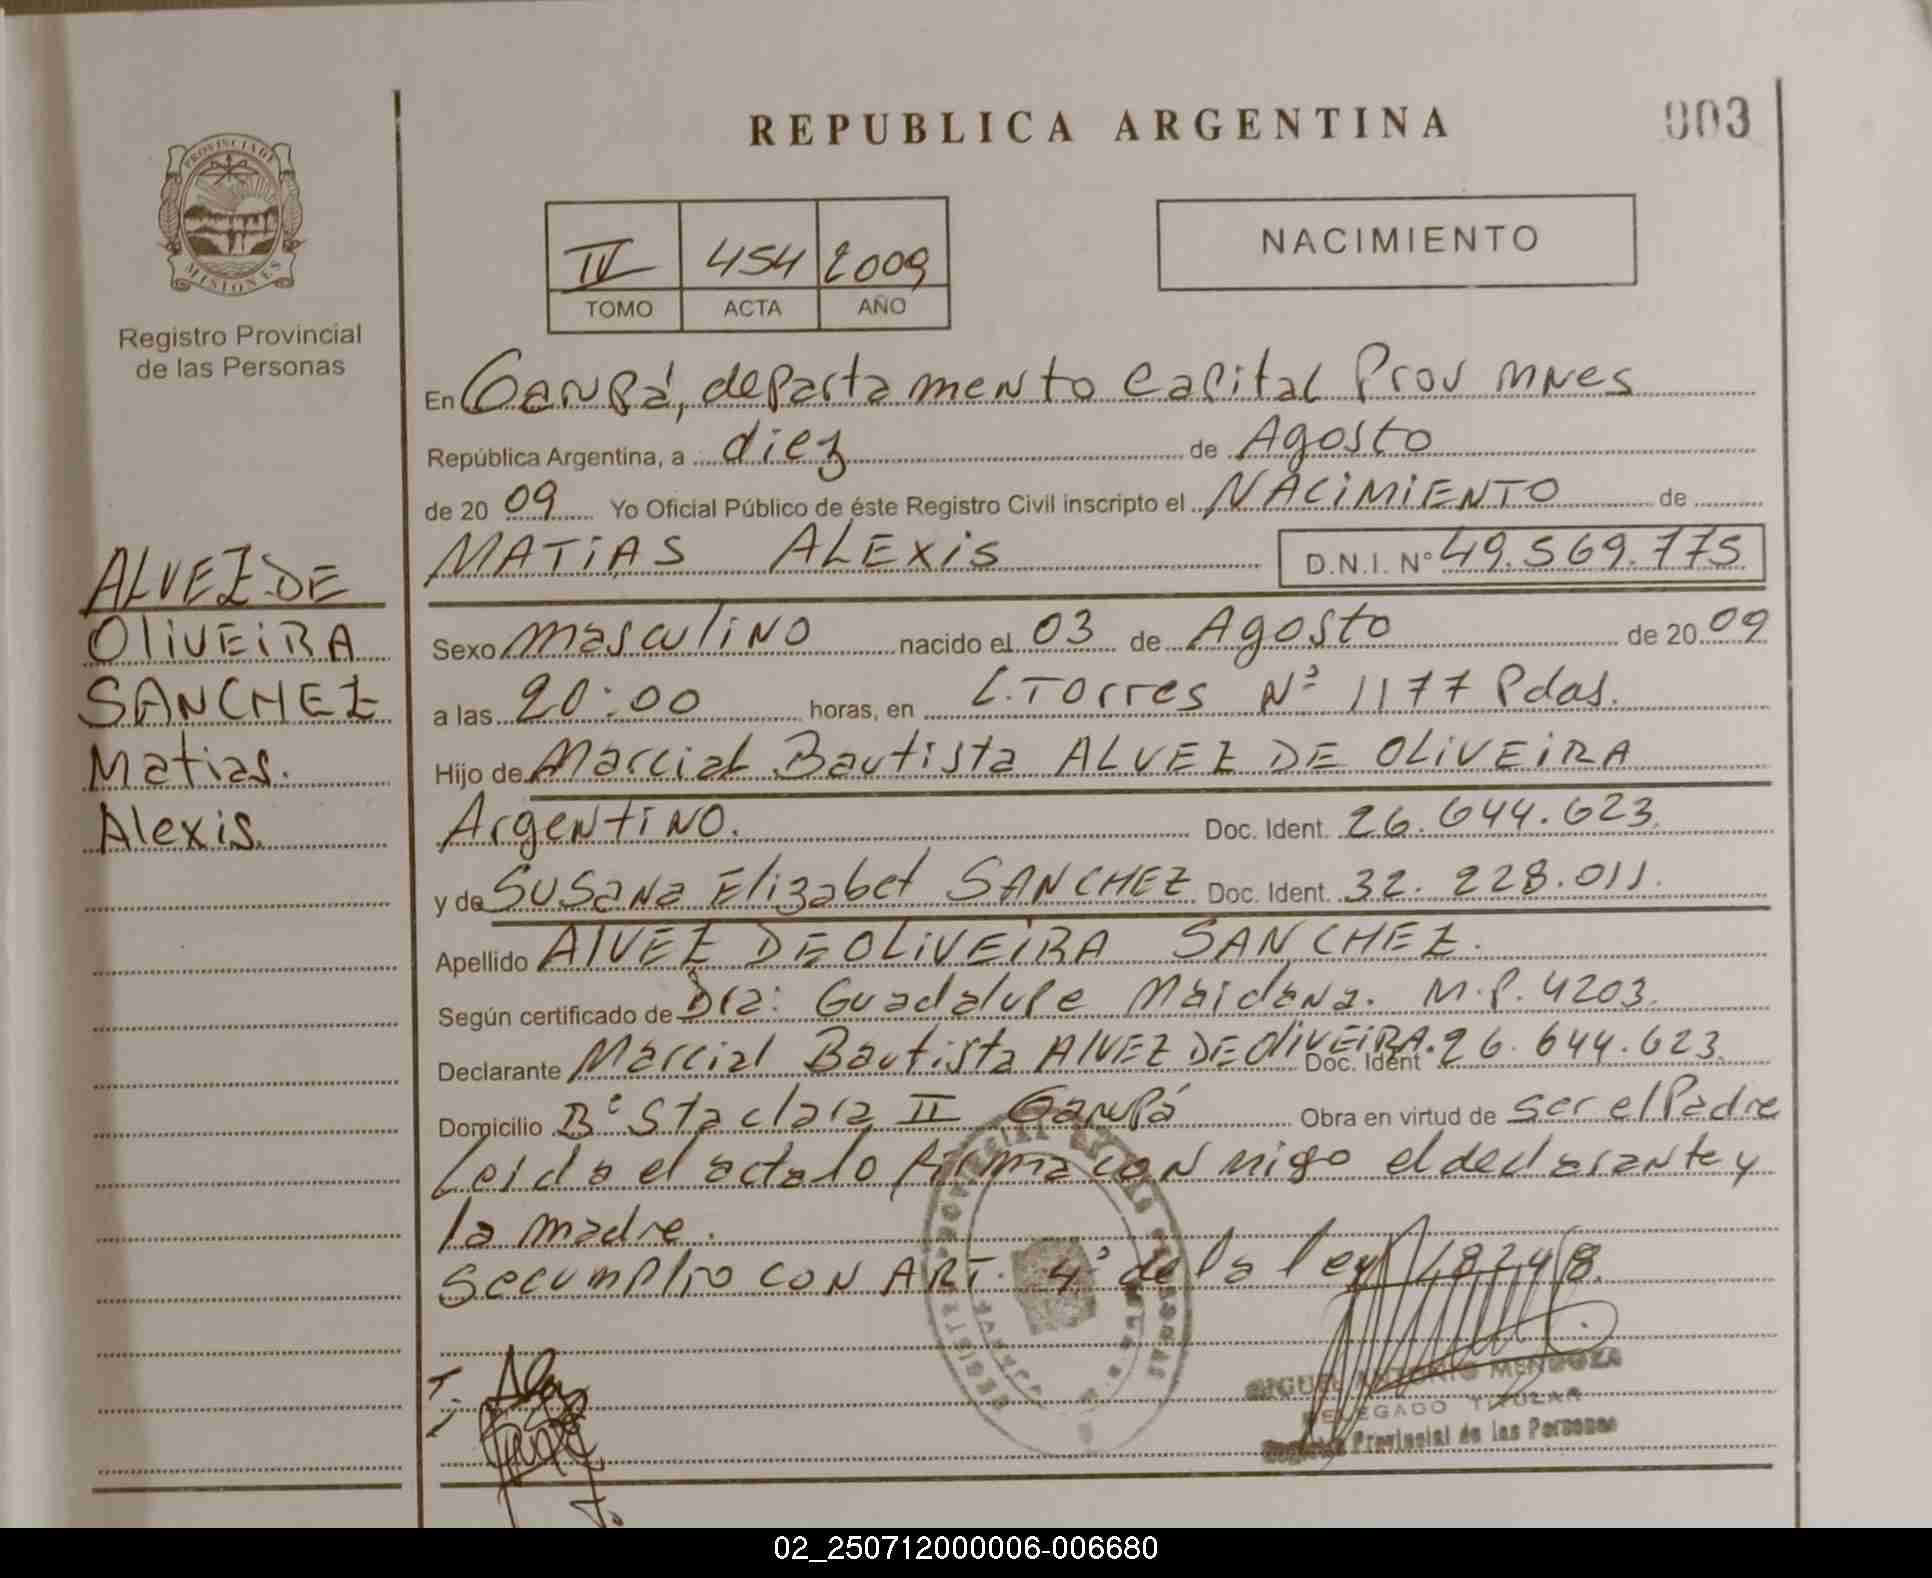 REPUBLICA ARGENTINA
003
PROVINCIA DE
MISIONES
Registro Provincial
de las Personas
IV 454 2009
TOMO ACTA AÑO
NACIMIENTO
En Garupá, departamento Capital Prov Mnes
República Argentina, a diez de Agosto
de 20 09 Yo Oficial Público de éste Registro Civil inscripto el NACIMIENTO de
MATIAS ALEXIS D.N.I. Nº 49.569.775
ALVEZ DE
OLIVEIRA
SANCHEZ
Matias.
Alexis.
Sexo masculino nacido el 03 de Agosto de 20 09
a las 20:00 horas, en L. Torres Nº 1177 Pdas.
Hijo de Marcial Bautista ALVEZ DE OLIVEIRA
Argentino. Doc. Ident. 26.644.623
y de Susana Elizabet SANCHEZ Doc. Ident. 32.228.011.
Apellido ALVEZ DE OLIVEIRA SANCHEZ.
Según certificado de Dra: Guadalupe Maidana. M.P. 4203.
Declarante Marcial Bautista ALVEZ DE OLIVEIRA. Doc. Ident 26.644.623.
Domicilio Bº Sta clara II Garupá Obra en virtud de ser el Padre
Leida el acta lo firma con migo el declarante y
la madre.
se cumplio con ART. 4º de la ley 18248.
MIGUEL ANTONIO MENDOZA
DELEGADO TITULAR
Registro Provincial de las Personas
02_250712000006-006680